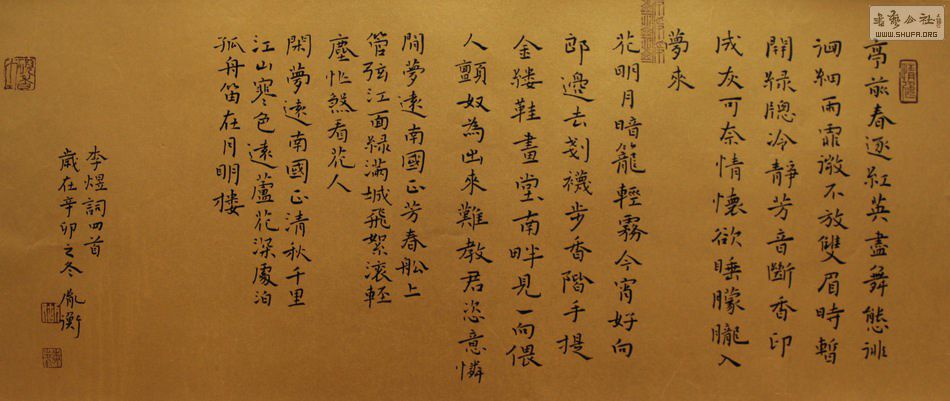 亭前春逐紅英盡舞態徘
徊細雨霏微不放雙眉時暫
開綠牕冷靜芳音斷香印
成灰可奈情懷欲睡朦朧入
夢來
花明月暗籠輕霧今宵好向
郎邊去剗襪步香階手提
金縷鞋畫堂南畔見一向偎
人顫奴為出來難教君恣意憐
閒夢遠南國正芳春船上
管弦江面綠滿城飛絮滚輕
塵忙煞看花人
閑夢遠南國正清秋千里
江山寒色遠蘆花深處泊
孤舟笛在月明樓
李煜詞四首
歲在辛卯之冬 胤衡
WWW.SHUFA.ORG